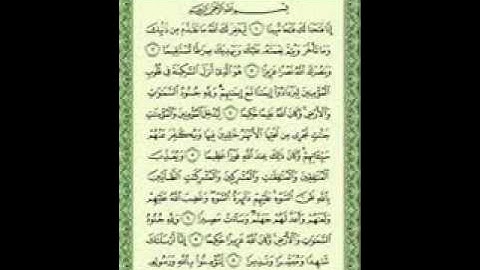 بِسْمِ اللَّهِ الرَّحْمَٰنِ الرَّحِيمِ
إِنَّا فَتَحْنَا لَكَ فَتْحًا مُّبِينًا ١ لِّيَغْفِرَ لَكَ اللَّهُ مَا تَقَدَّمَ مِن ذَنبِكَ
وَمَا تَأَخَّرَ وَيُتِمَّ نِعْمَتَهُ عَلَيْكَ وَيَهْدِيَكَ صِرَاطًا مُّسْتَقِيمًا ٢
وَيَنصُرَكَ اللَّهُ نَصْرًا عَزِيزًا ٣ هُوَ الَّذِي أَنزَلَ السَّكِينَةَ فِي قُلُوبِ
الْمُؤْمِنِينَ لِيَزْدَادُوا إِيمَانًا مَّعَ إِيمَانِهِمْ وَلِلَّهِ جُنُودُ السَّمَاوَاتِ
وَالْأَرْضِ وَكَانَ اللَّهُ عَلِيمًا حَكِيمًا ٤ لِّيُدْخِلَ الْمُؤْمِنِينَ وَالْمُؤْمِنَاتِ
جَنَّاتٍ تَجْرِي مِن تَحْتِهَا الْأَنْهَارُ خَالِدِينَ فِيهَا وَيُكَفِّرَ عَنْهُمْ
سَيِّئَاتِهِمْ وَكَانَ ذَٰلِكَ عِندَ اللَّهِ فَوْزًا عَظِيمًا ٥ وَيُعَذِّبَ
الْمُنَافِقِينَ وَالْمُنَافِقَاتِ وَالْمُشْرِكِينَ وَالْمُشْرِكَاتِ الظَّانِّينَ
بِاللَّهِ ظَنَّ السَّوْءِ عَلَيْهِمْ دَائِرَةُ السَّوْءِ وَغَضِبَ اللَّهُ عَلَيْهِمْ
وَلَعَنَهُمْ وَأَعَدَّ لَهُمْ جَهَنَّمَ وَسَاءَتْ مَصِيرًا ٦ وَلِلَّهِ جُنُودُ
السَّمَاوَاتِ وَالْأَرْضِ وَكَانَ اللَّهُ عَزِيزًا حَكِيمًا ٧ إِنَّا أَرْسَلْنَاكَ
شَاهِدًا وَمُبَشِّرًا وَنَذِيرًا ٨ لِّتُؤْمِنُوا بِاللَّهِ وَرَسُولِهِ